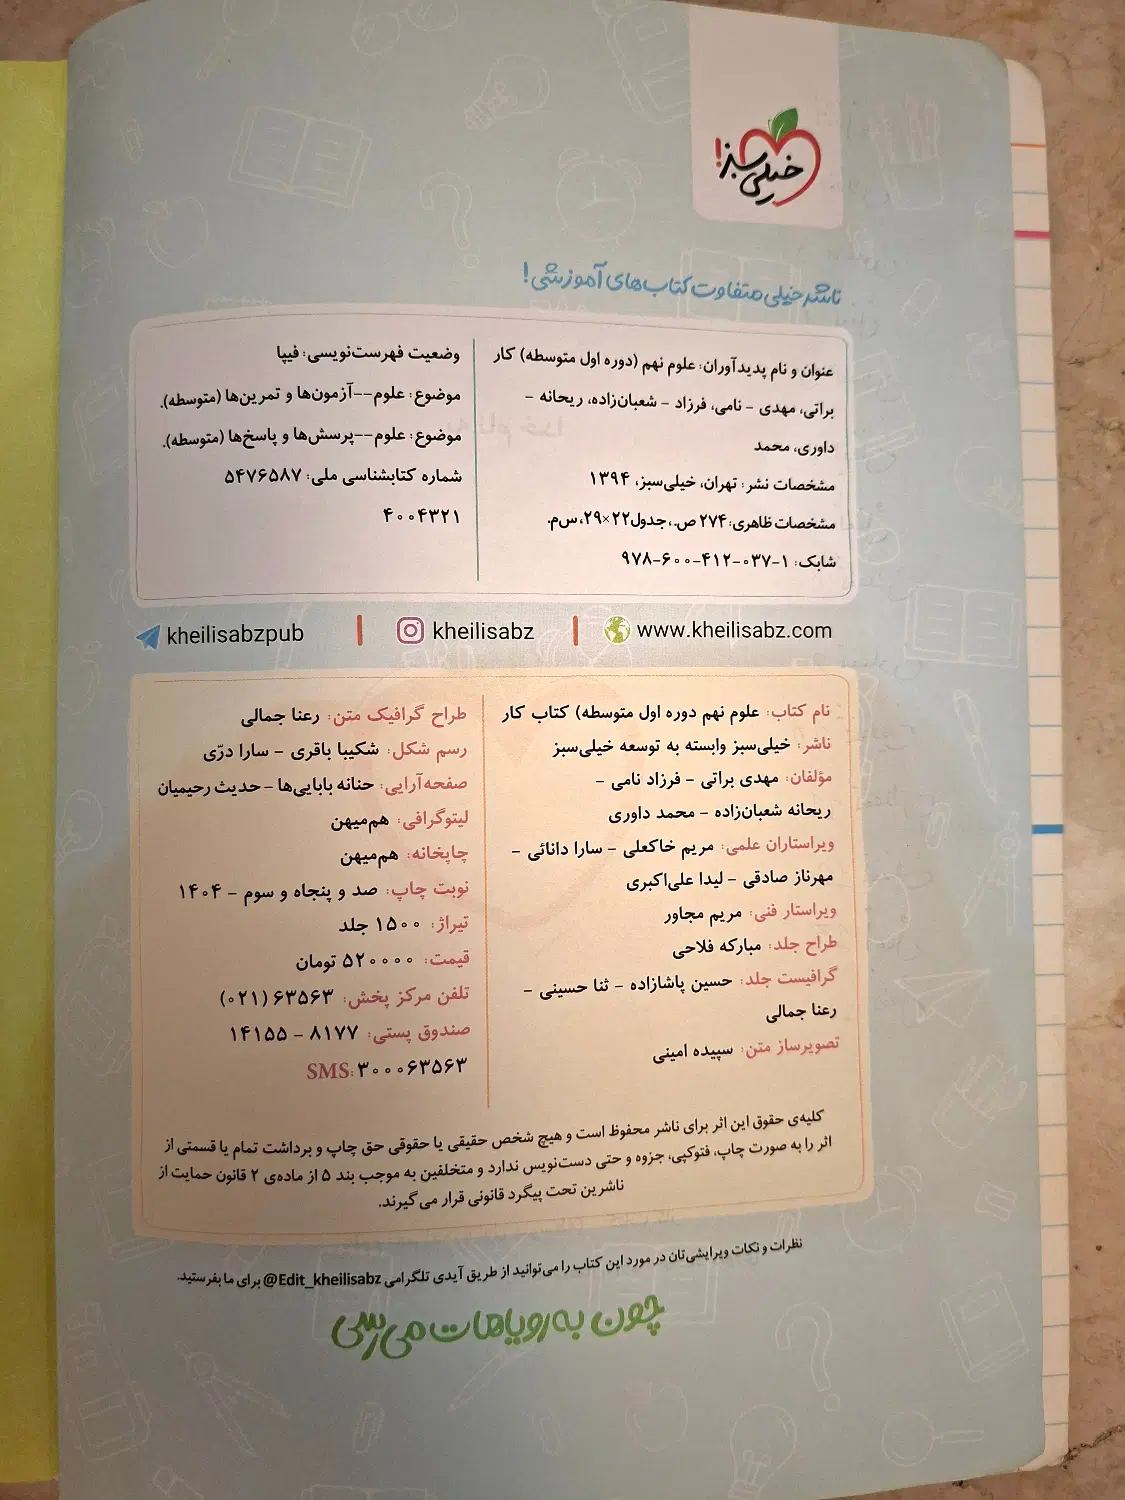 خیلی سبز!
ناشر خیلی متفاوت کتاب‌های آموزشی!
عنوان و نام پدیدآوران: علوم نهم (دوره اول متوسطه) کار
براتی، مهدی - نامی، فرزاد - شعبان‌زاده، ریحانه -
داوری، محمد
مشخصات نشر: تهران، خیلی‌سبز، ۱۳۹۴
مشخصات ظاهری: ۲۷۴ ص.، جدول ۲۲×۲۹، س‌م.
شابک: ۱-۰۳۷-۴۱۲-۶۰۰-۹۷۸
وضعیت فهرست‌نویسی: فیپا
موضوع: علوم--آزمون‌ها و تمرین‌ها (متوسطه).
موضوع: علوم--پرسش‌ها و پاسخ‌ها (متوسطه).
شماره کتابشناسی ملی: ۵۴۷۶۵۸۷
۴۰۰۴۳۲۱
kheilisabzpub | kheilisabz | www.kheilisabz.com
نام کتاب: علوم نهم دوره اول متوسطه) کتاب کار
ناشر: خیلی‌سبز وابسته به توسعه خیلی‌سبز
مؤلفان: مهدی براتی - فرزاد نامی -
ریحانه شعبان‌زاده - محمد داوری
ویراستاران علمی: مریم خاکعلی - سارا دانائی -
مهرناز صادقی - لیدا علی‌اکبری
ویراستار فنی: مریم مجاور
طراح جلد: مبارکه فلاحی
گرافیست جلد: حسین پاشازاده - ثنا حسینی -
رعنا جمالی
تصویرساز متن: سپیده امینی
طراح گرافیک متن: رعنا جمالی
رسم شکل: شکیبا باقری - سارا درّی
صفحه‌آرایی: حنانه بابایی‌ها - حدیث رحیمیان
لیتوگرافی: هم‌میهن
چاپخانه: هم‌میهن
نوبت چاپ: صد و پنجاه و سوم - ۱۴۰۴
تیراژ: ۱۵۰۰ جلد
قیمت: ۵۲۰۰۰۰ تومان
تلفن مرکز پخش: ۶۳۵۶۳ (۰۲۱)
صندوق پستی: ۸۱۷۷ - ۱۴۱۵۵
SMS: ۳۰۰۰۶۳۵۶۳
کلیه‌ی حقوق این اثر برای ناشر محفوظ است و هیچ شخص حقیقی یا حقوقی حق چاپ و برداشت تمام یا قسمتی از
اثر را به صورت چاپ، فتوکپی، جزوه و حتی دست‌نویس ندارد و متخلفین به موجب بند ۵ از ماده‌ی ۲ قانون حمایت از
ناشرین تحت پیگرد قانونی قرار می‌گیرند.
نظرات و نکات ویرایشی‌تان در مورد این کتاب را می‌توانید از طریق آیدی تلگرامی @Edit_kheilisabz برای ما بفرستید.
چون به رویاهات می‌رسی